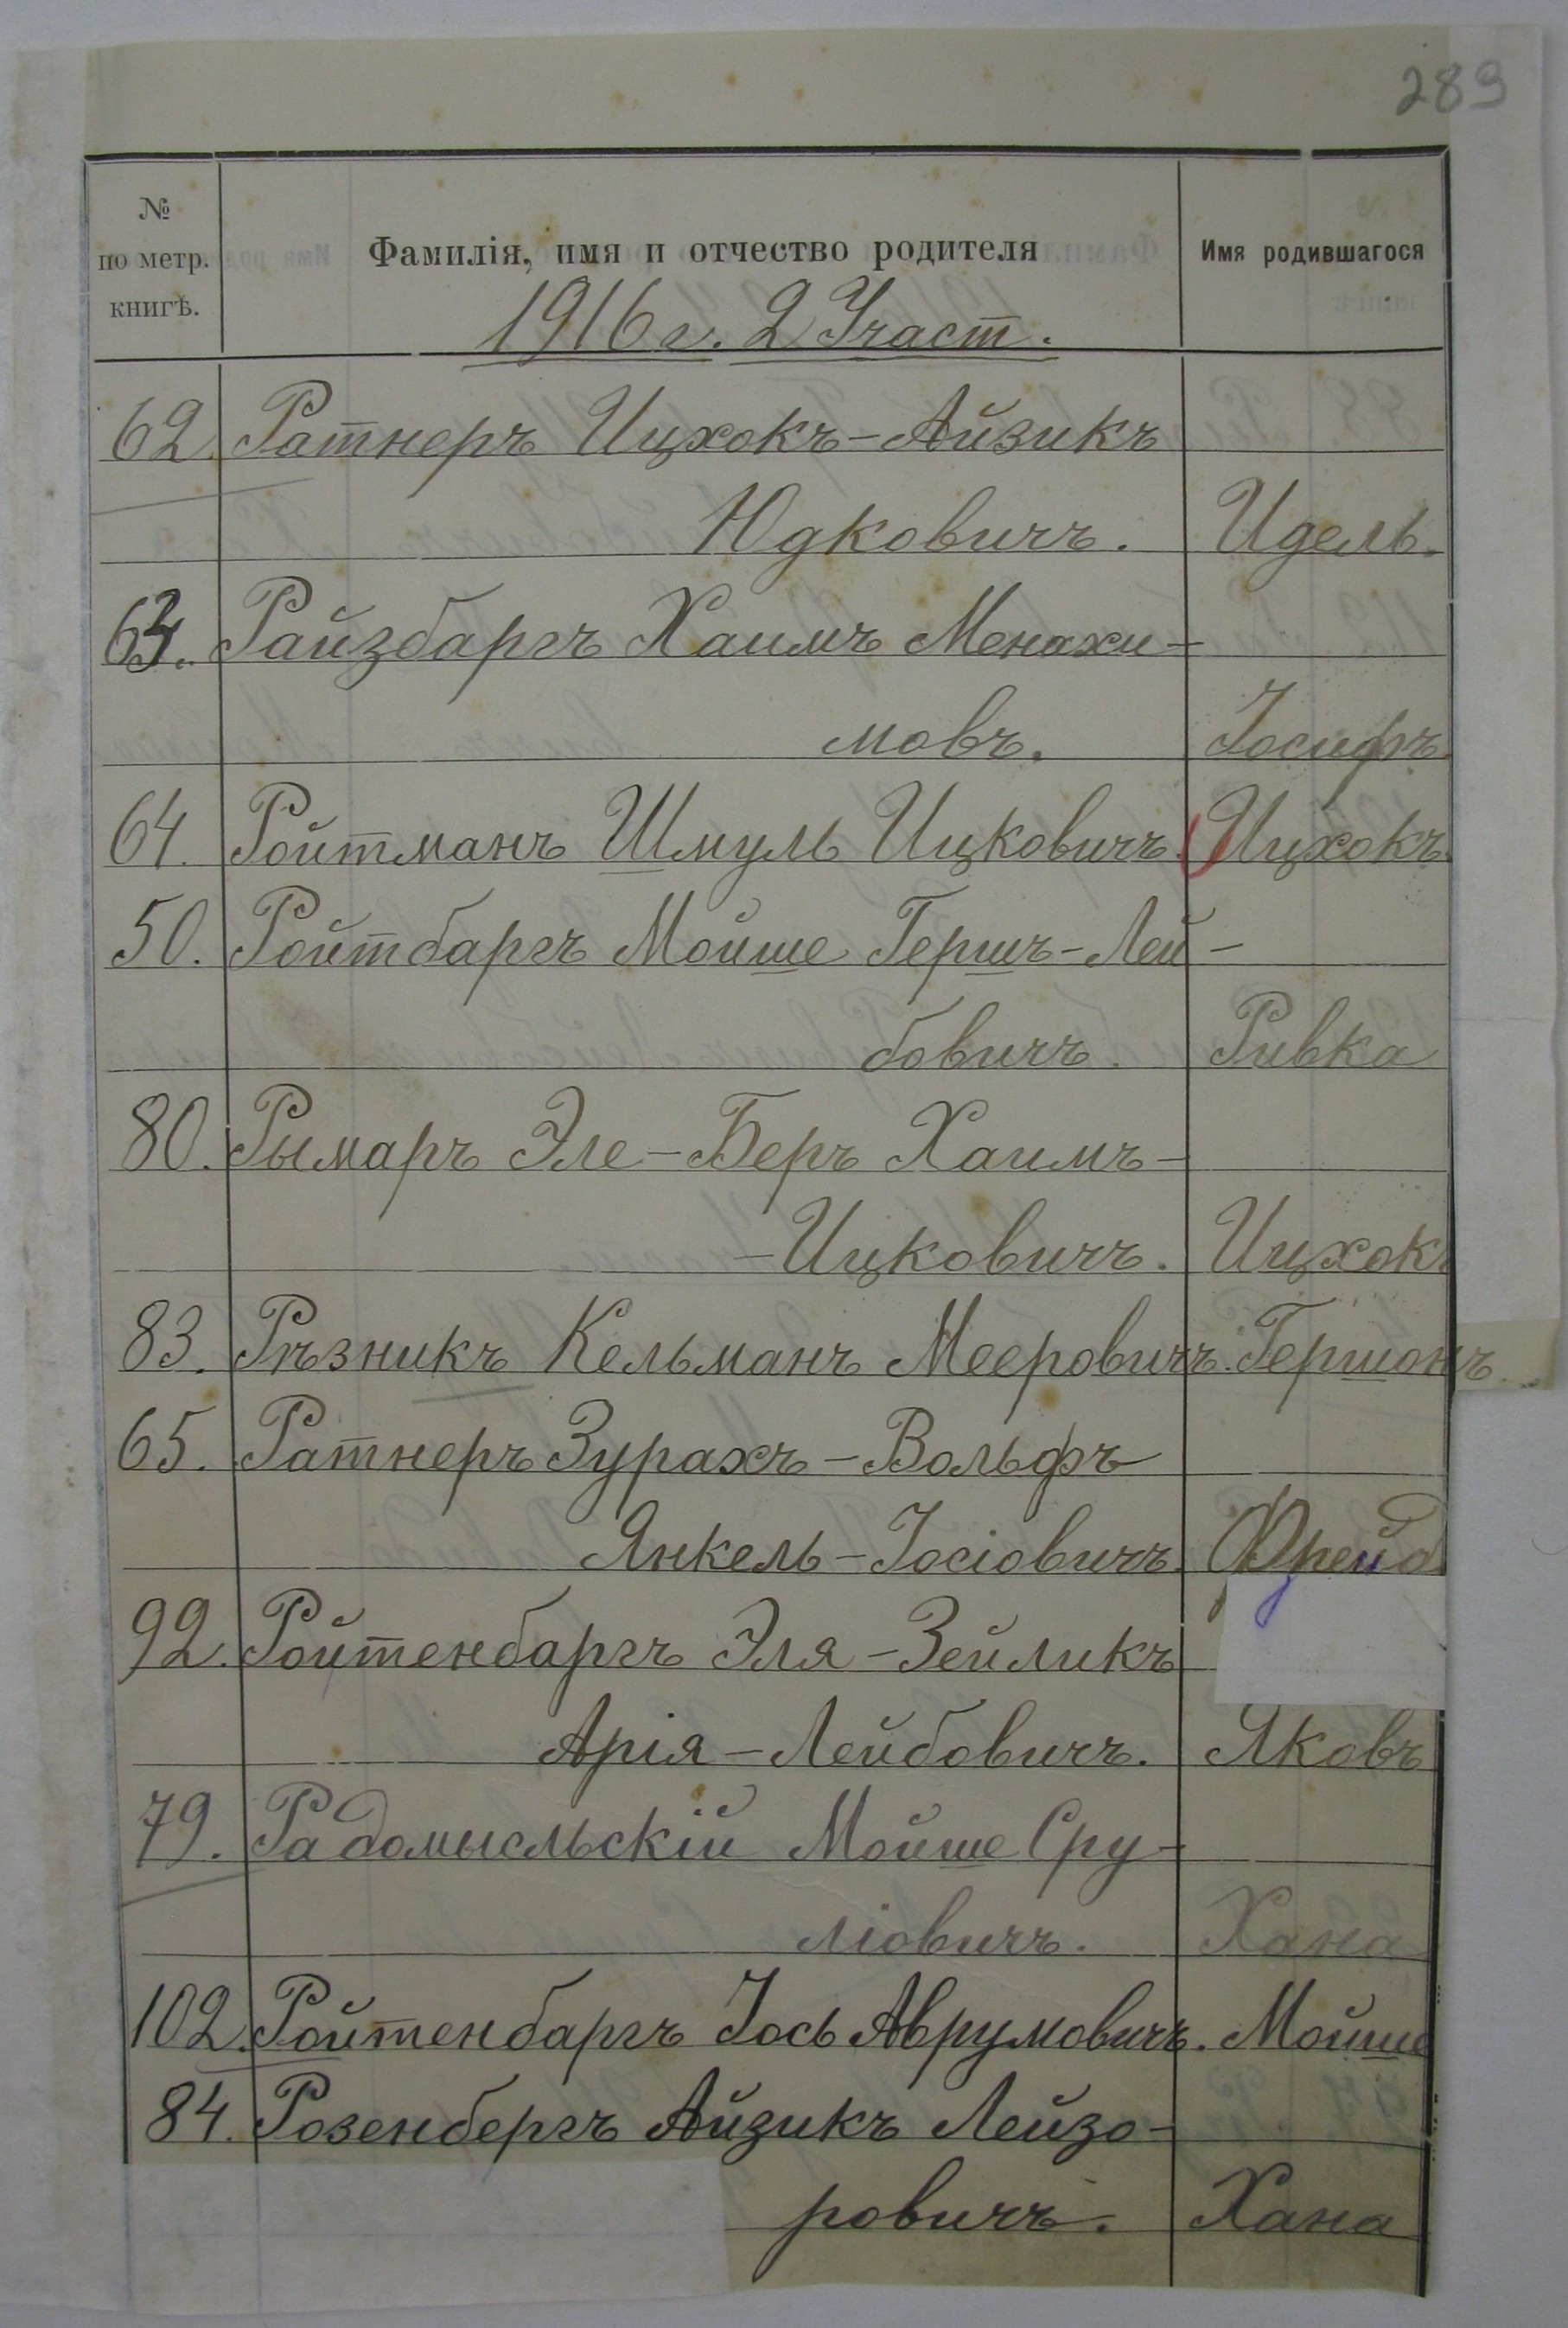 289
№ по метр. книгѣ. Фамилія, имя и отчество родителя Имя родившагося
1916 г. 2 Участ.
62. Ратнеръ Ицхокъ-Айзикъ
Юдковичъ. Идель.
63. Райзбаргъ Хаимъ Менахи-
мовъ. Іосифъ
64. Ройтманъ Шмуль Ицковичъ. Ицхокъ.
50. Ройтбаргъ Мойше Гершъ-Лей-
бовичъ. Ривка
80. Рымаръ Эле-Беръ Хаимъ-
-Ицковичъ. Ицхокъ
83. Рѣзникъ Кельманъ Мееровичъ. Гершонъ.
65. Ратнеръ Зурахъ-Вольфъ
Янкель-Іосіовичъ. Фрейд
92. Ройтенбаргъ Эля-Зейликъ
Арія-Лейбовичъ. Яковъ
79. Радомысльскій Мойше Сру-
ліовичъ. Хана
102. Ройтенбаргъ Іось Аврумовичъ. Мойше
84. Розенбергъ Айзикъ Лейзо-
ровичъ. Хана